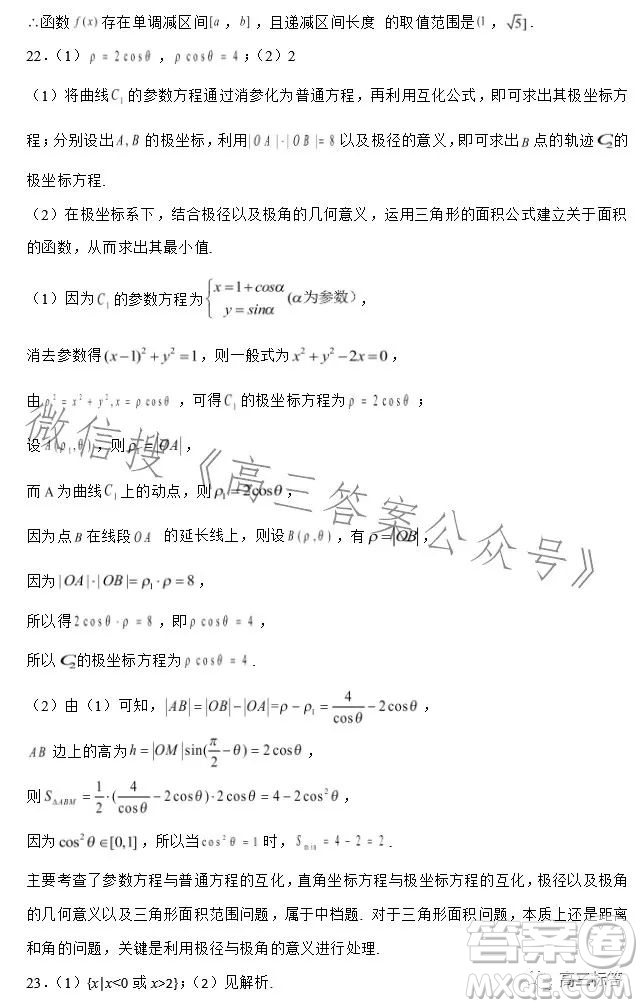 ∴函数 f(x) 存在单调减区间[a，b]，且递减区间长度 的取值范围是(1，√5].
22.(1) ρ=2cosθ，ρcosθ=4；(2)2
(1)将曲线C₁的参数方程通过消参化为普通方程，再利用互化公式，即可求出其极坐标方
程；分别设出A,B的极坐标，利用|OA|·|OB|=8以及极径的意义，即可求出B点的轨迹C₂的
极坐标方程.
(2)在极坐标系下，结合极径以及极角的几何意义，运用三角形的面积公式建立关于面积
的函数，从而求出其最小值.
(1)因为C₁的参数方程为{x=1+cosα y=sinα (α为参数)，
消去参数得(x−1)²+y²=1，则一般式为x²+y²−2x=0，
由ρ²=x²+y²,x=ρcosθ，可得C₁的极坐标方程为ρ=2cosθ；
设A(ρ₁,θ)，则ρ₁=|OA|，
而A为曲线C₁上的动点，则ρ₁=2cosθ，
因为点B在线段OA 的延长线上，则设B(ρ,θ)，有ρ=|OB|，
因为|OA|·|OB|=ρ₁·ρ=8，
所以得2cosθ·ρ=8，即ρcosθ=4，
所以C₂的极坐标方程为ρcosθ=4.
(2)由(1)可知，|AB|=|OB|−|OA|=ρ−ρ₁=4/cosθ−2cosθ，
AB边上的高为h=|OM|sin(π/2−θ)=2cosθ，
则S△ABM=1/2·(4/cosθ−2cosθ)·2cosθ=4−2cos²θ，
因为cos²θ∈[0,1]，所以当cos²θ=1时，Smin=4−2=2.
主要考查了参数方程与普通方程的互化，直角坐标方程与极坐标方程的互化，极径以及极角
的几何意义以及三角形面积范围问题，属于中档题. 对于三角形面积问题，本质上还是距离
和角的问题，关键是利用极径与极角的意义进行处理.
23.(1){x|x<0或x>2}；(2)见解析.
微信搜《高三答案公众号》
答案圈
MXQE.COM
高三标答